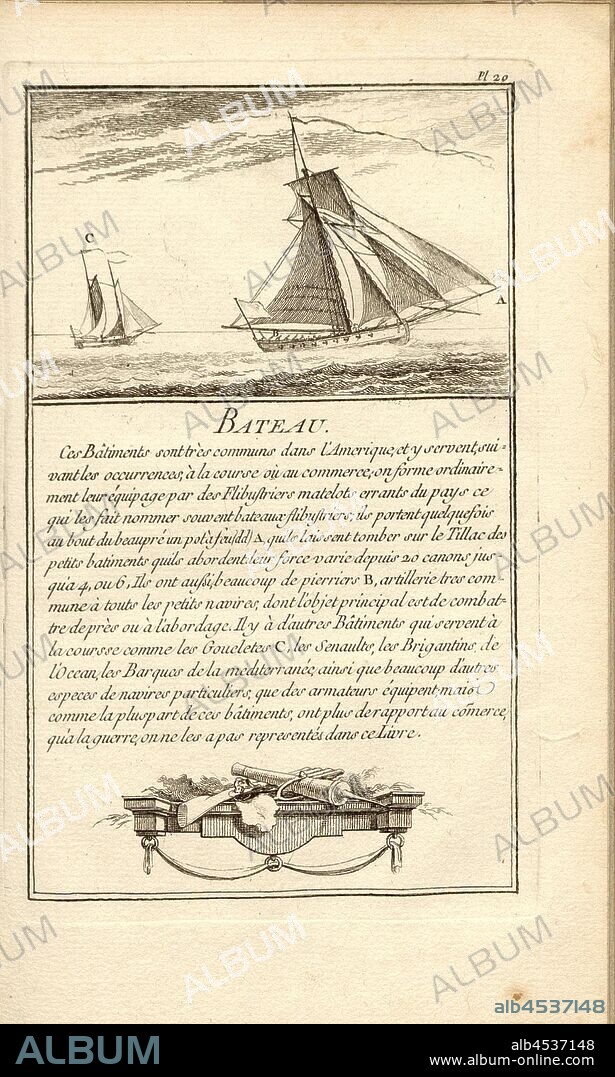 Pl 20
C
A
B
BATEAU.
Ces Bâtiments sont très communs dans l'Amerique, et y servent, sui=
vant les occurrences, à la course où au commerce, on forme ordinaire=
ment leur équipage par des Flibustriers matelots errants du pays ce
qui les fait nommer souvent bateaux flibustriers; ils portent quelquefois
au bout du beaupré un pot à feu A, qu'ils laissent tomber sur le Tillac des
petits batiments quils abordent, leur force varie depuis 20 canons jus
qu'a 4, ou 6, Ils ont aussi, beaucoup de pierriers B, artillerie tres com=
mune à touts les petits navires, dont l'objet principal est de combat=
tre de près ou à l'abordage. Il y à d'autres Bâtiments qui servent à
la coursse comme les Goueletes C, les Senaults, les Brigantins, de
l'Ocean, les Barques de la mediterranée, ainsi que beaucoup d'autres
especes de navires particuliers, que des armateurs équipent, mais
comme la pluspart de ces bâtiments, ont plus de rapport au cōmerce,
qu'a la guerre, on ne les a pas representés dans ce Livre.
ALBUM
alb4537148
ALBUM
alb4537148
www.album-online.com